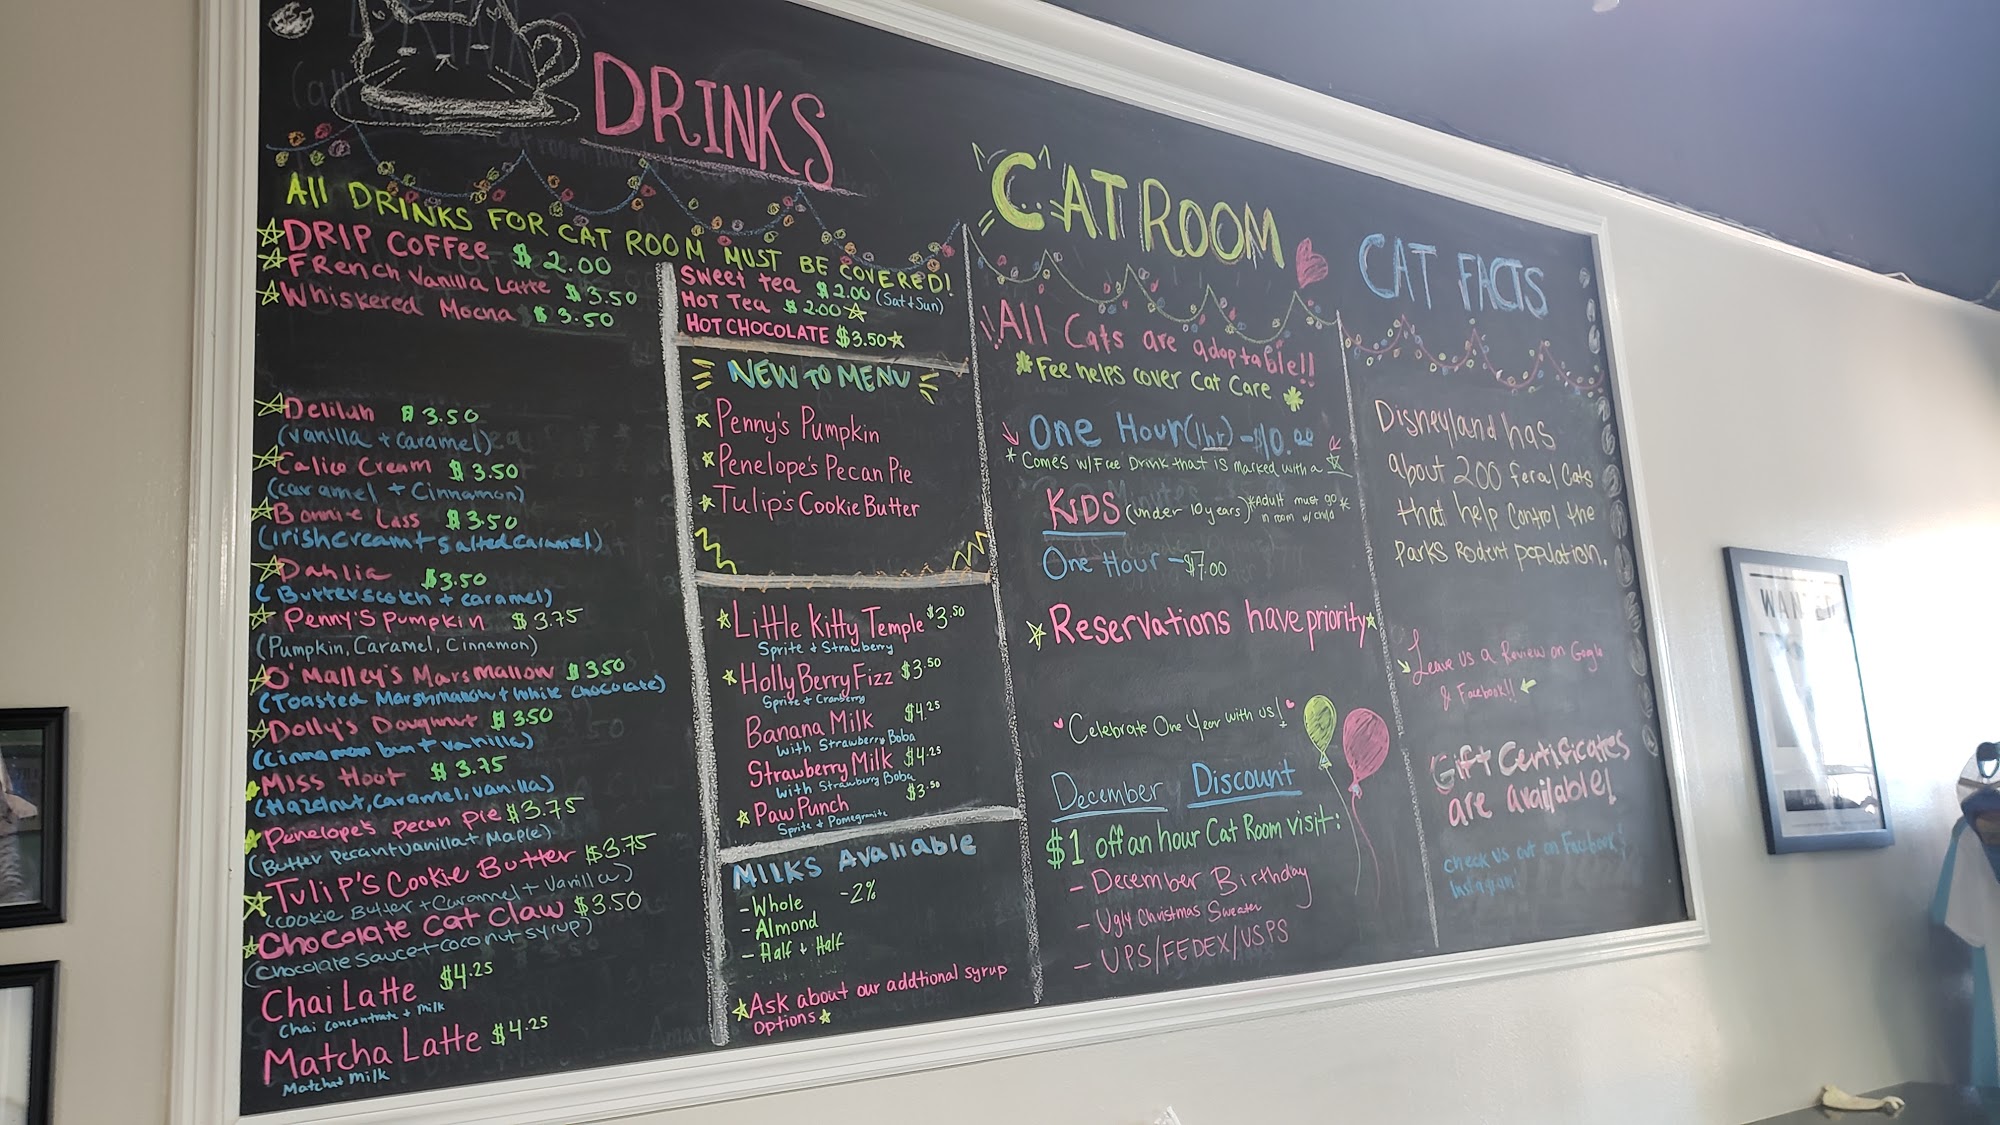 DRINKS
All DRINKS FOR CAT ROOM MUST BE COVERED!
DRIP COFFEE $2.00
FRench Vanilla Latte $3.50
Whiskered Mocha $3.50
Delilah $3.50
(Vanilla + caramel)
Calico Cream $3.50
(caramel + Cinnamon)
Bonnie Lass $3.50
(irish cream + salted caramel)
Dahlia $3.50
(Butterscotch + caramel)
Penny's Pumpkin $3.75
(Pumpkin, Caramel, Cinnamon)
O'Malley's Marsmallow $3.50
(Toasted Marshmallow + White Chocolate)
Dolly's Doughnut $3.50
(Cinnamon bun + Vanilla)
Miss Hoot $3.75
(Hazelnut, caramel, vanilla)
Penelope's Pecan Pie $3.75
(Butter Pecan + Vanilla + Maple)
Tulip's Cookie Butter $3.75
(Cookie Butter + Caramel + Vanilla)
Chocolate Cat Claw $3.50
(Chocolate sauce + coconut syrup)
Chai Latte $4.25
Chai concentrate + Milk
Matcha Latte $4.25
Matcha + Milk
Sweet Tea $2.00 (Sat + Sun)
HOT TEA $2.00
HOT CHOCOLATE $3.50
NEW TO MENU
Penny's Pumpkin
Penelope's Pecan Pie
Tulip's Cookie Butter
Little Kitty Temple $3.50
Sprite + Strawberry
Holly Berry Fizz $3.50
Sprite + Cranberry
Banana Milk $4.25
with Strawberry Boba
Strawberry Milk $4.25
with Strawberry Boba
Paw Punch $3.50
Sprite + Pomegranite
MILKS Avaliable
- Whole -2%
- Almond
- Half + Half
Ask about our addtional syrup
options
CAT ROOM
All Cats are adoptable!!
*Fee helps cover Cat Care
One Hour (1hr) - $10.00
*Comes w/ Free Drink that is marked with a ☆
KIDS (under 10 years) *Adult must go
in room w/ child*
One Hour - $7.00
Reservations have priority
Celebrate One Year with us!
December Discount
$1 off an hour Cat Room visit:
- December Birthday
- Ugly Christmas Sweater
- UPS/FEDEX/USPS
CAT FACTS
Disneyland has
about 200 feral cats
that help control the
parks Rodent population.
Leave us a Review on Google
& Facebook!!
Gift Certificates
are available!
check us out on Facebook &
Instagram!
WANTED